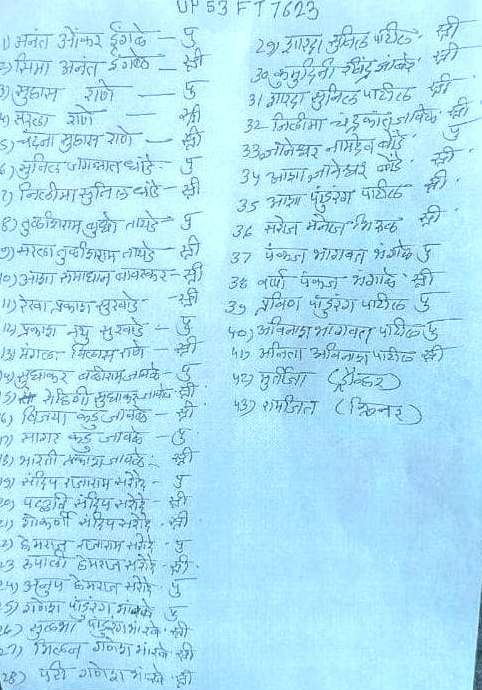 UP 53 FT 7623
1) अनंत ओंकार इंगळे - पु
2) सिमा अनंत इंगळे - स्त्री
3) सुहास राणे - पु
4) सरला राणे - स्त्री
5) चंदना सुहास राणे - स्त्री
6) सुनिल जगन्नाथ धांडे - पु
7) निलीमा सुनिल धांडे - स्त्री
8) तुळशीराम तायडे - पु
9) सरला तुळशीराम तायडे - स्त्री
10) आशा समाधान बावस्कर - स्त्री
11) रेखा प्रकाश सुरवाडे - स्त्री
12) प्रकाश नथु सुरवाडे - पु
13) मंगला विलास राणे - स्त्री
14) सुधाकर बळीराम जावळे - पु
15) रोहिणी सुधाकर जावळे - स्त्री
16) विजया कडु जावळे - स्त्री
17) सागर कडु जावळे - पु
18) भारती प्रकाश जावळे - स्त्री
19) संदिप राजाराम सरोदे - पु
20) पल्लवी संदिप सरोदे - स्त्री
21) गोकर्णी संदिप सरोदे - स्त्री
22) हेमराज राजाराम सरोदे - पु
23 रुपाली हेमराज सरोदे - स्त्री
24) अनुप हेमराज सरोदे - पु
25) गणेश पांडुरंग भारंबे पु
26) सुलभा पांडुरंग भारंबे - स्त्री
27) मिलन गणेश भारंबे - स्त्री
28) परी गणेश भारंबे - स्त्री
29) शारदा सुनिल पाटील - स्त्री
30 कुमुदिनी रविंद्र जावळे - स्त्री
31 शारदा सुनिल पाटील स्त्री
32 निलीमा चंद्रकांत जावळे स्त्री
33 ज्ञानेश्वर नामदेव बोंडे पु
34 आशा ज्ञानेश्वर बोंडे - स्त्री
35 आशा पांडुरंग पाटील स्त्री
36 सरोज मनोज भिरुड स्त्री
37 पंकज भागवत भंगाळे पु
38 वर्षा पंकज भंगाळे स्त्री
39 प्रविण पांडुरंग पाटील पु
40) अविनाश भागवत पाटील पु
41) अनिता अविनाश पाटील स्त्री
42) मुर्तीजा (ड्रायव्हर)
43) रामजित (क्लिनर)